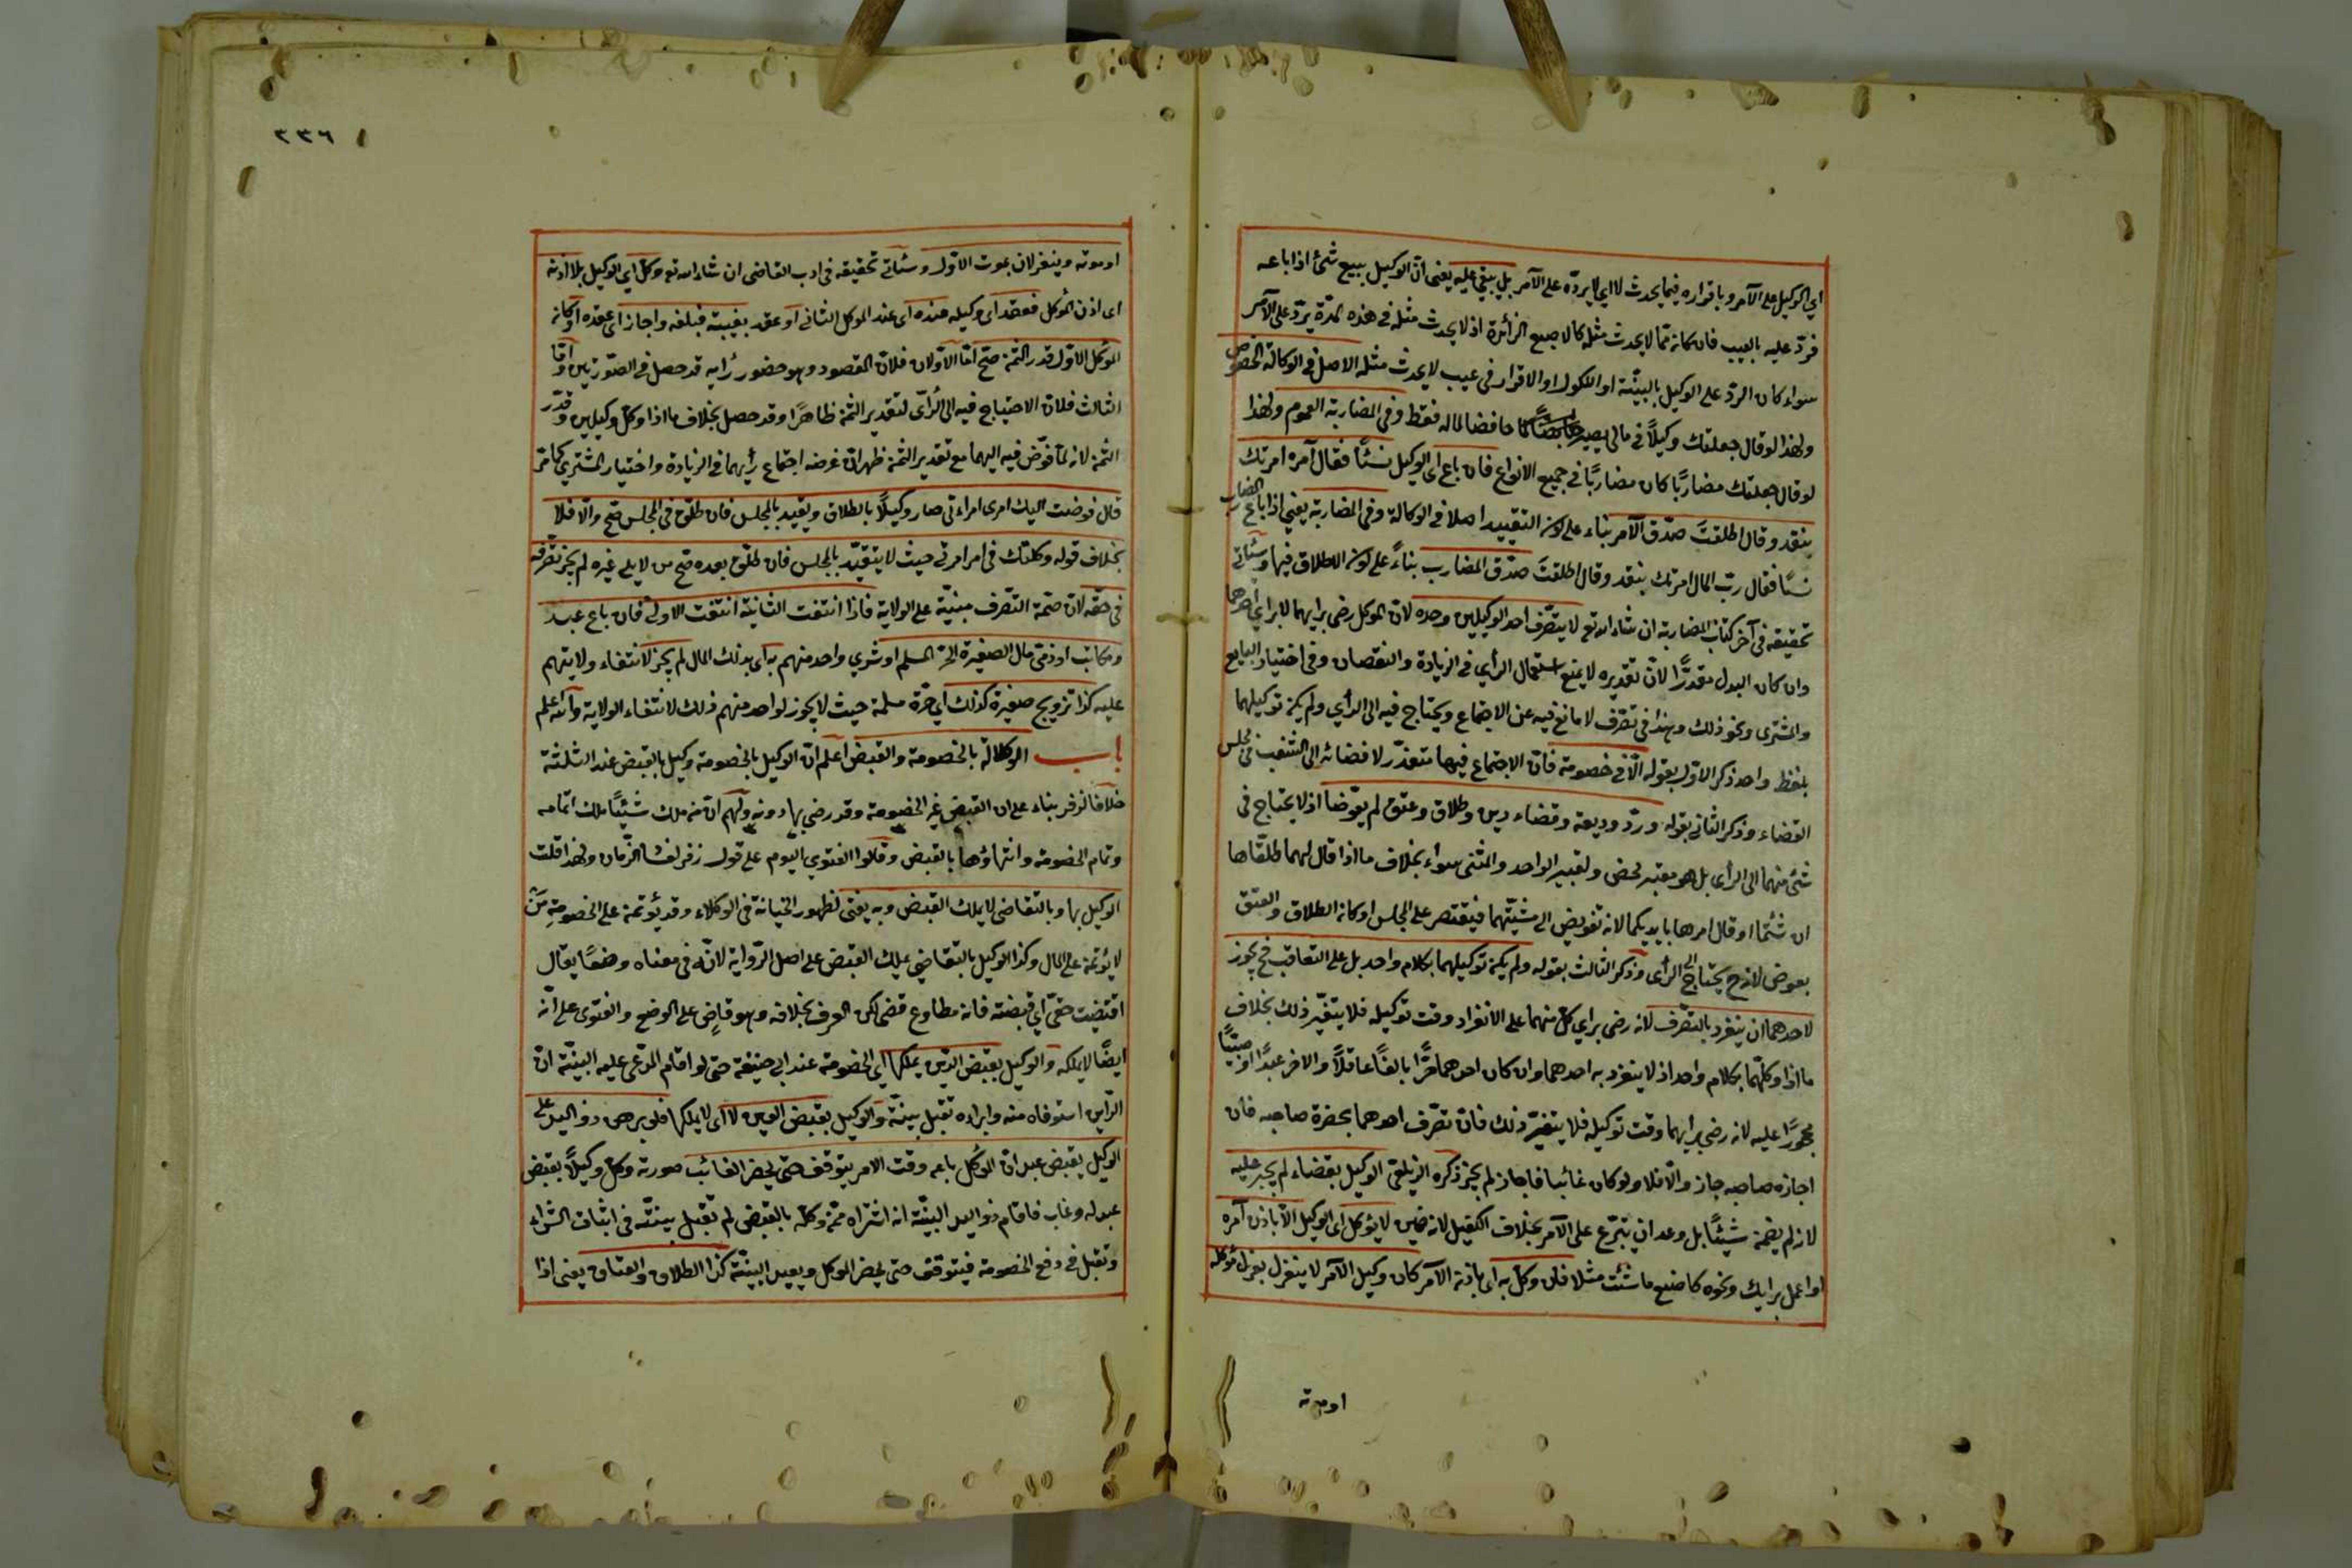 اي الوكيل على الآمر وباقراره فيما يحدث لا اي لا يردّه على الآمر بل يبقى عليه يعنى انّ الوكيل ببيع شئ اذا باعه
فردّ عليه بالعيب فان كانه ممّا لا يحدث مثله كالاصبع الزائدة اذ لا يحدث مثله فى هذه المدّة يردّ على الآمر
سواء كان الردّ على الوكيل بالبينّة او النكول او الاقرار فى عيب لا يحدث مثله الاصل فى الوكالة الخصوص
ولهذا لو قال جعلتك وكيلاً فى مالى يصير حافضا لماله فقط وفى المضاربة العموم ولهذا
لو قال جعلتك مضاربًا كان مضاربًا فى جميع الانواع فان باع اى الوكيل نسئًا فقال آمره امرتك
بنقد وقال اطلقتَ صدّق الآمر بناء على كون التقييد اصلا فى الوكالة وفى المضاربة يعنى اذا باع المضارب
نسئًا فقال ربّ المال امرتك بنقد وقال اطلقتَ صدّق المضارب بناءً على كون الاطلاق فيها وسيأتى
تحقيقه فى آخر كتاب المضاربة ان شاء الله تع لا يتصّرف احد الوكيلين وحده لانّ الموكل رضى برايهما لا براي احدهما
وان كان البدل مقدرًّا لانّ تقديره لا يمنع استعمال الرأي فى الزيادة والنقصان وفى اختيار البايع
والمشترى ونحو ذلك وهذا فى تصّرف لا مانع فيه عن الاجتماع ويحتاج فيه الى الرأي ولم يكن توكيلهما
بلفظ واحد ذكر الاوّل بقوله الّا فى خصومة فانّ الاجتماع فيها متعذّر لافضائه الى الشغب فى مجلس
القضاء وذكر الثانى بقوله وردّ وديعة وقضاء دين وطلاق وعتق لم يعوّضا اذ لا يحتاج فى
شئ منهما الى الرأى بل هو معتبر محض ولتعبير الواحد والمثنى سواء بخلاف ما اذا قال لهما طلقّاها
ان شئتما او قال امرها بايديكما لانه تفويض الى مشيّتهما فيقتصر على المجلس او كانه الطلاق والعتق
بعوض لانه ح يحتاج الى الرأى وذكر الثالث بقوله ولم يكن توكيلهما بكلام واحد بل على التعاقب فح يجوز
لاحدهما ان ينفرد بالتصّرف لانه رضى براي كلّ منهما على الانفراد وقت توكيله فلا يتغيّر ذلك بخلاف
ما اذا وكلّهما بكلام واحد اذ لا ينفرد به احدهما وان كان احدهما حرًّا بالغًا عاقلاً والاخر عبدًا او صبيًّا
محجورًا عليه لانه رضى برأيهما وقت توكيله فلا يتغيّر ذلك فانّ تصّرف احدهما بحضرة صاحبه فان
اجازه صاحبه جاز والّا فلا ولو كان غائبا فاجاز لم يجز ذكره الزيلعى الوكيل بقضاء لم يجبر عليه
لانه لم يضمن شيئًا بل وعد ان يتبرّع على الآمر بخلاف الكفيل لانه ضمين لا يوكل اى الوكيل الّا باذن آمره
او اعمل برايك ونحوه كاصنع ما شئت مثلا فان وكل به اى باذنه الآمر كان وكيل الآمر لا ينعزل بعزل موكله
او موته
٢٣٦
او موته وينعزلان بموت الاوّل وسيأتى تحقيقه فى ادب القاضى ان شاء الله تع وكل اي الوكيل بلا اذنه
اى اذن الموكل فعقد اى وكيله عنده اى عند الموكل الثانى او عقد بغيبته فبلغه واجاز اى عقده او كانه
الموكل الاوّل قدر الثمن صحّ امّا الاوّلان فلانّ المقصود وهو حضور رأيه قد حصل فى الصّورتين وامّا
الثالث فلانّ الاحتياج فيه الى الرأى لتقدير الثمن ظاهرًا وقد حصل بخلاف ما اذا وكل وكيلين وقدّر
الثمن لانه لمّا فوّض فيه اليهما مع تقدير الثمن ظهر انّ غرضه اجتماع رأيهما فى الزيادة واختيار المشترى كما مّر
قال فوضت اليك امرى امراءتى صار وكيلاً بالطلاق وتقيد بالمجلس فان طلّق فى المجلس صحّ والّا فلا
بخلاف قوله وكلتك فى امر امرتى حيث لا يتقيّد بالمجلس فان طلّق بعده صحّ من لا يلى غيره لم يجز تصّرفه
فى حقّه لانّ صحّة التصّرف مبنيّة على الولاية فاذا انتفت الثانية انتفت الاولى فان باع عبد
ومكاتب او ذمّى مال الصغيرة الحّر المسلم او شرى واحد منهم به اى بذلك المال لم يجز لانتفاء ولايتهم
عليه كذا تزويج صغيرة كذلك اي حرّة مسلمة حيث لا يجوز لواحد منهم ذلك لانتفاء الولاية والله اعلم
باب الوكالة بالخصومة والقبض اعلم انّ الوكيل بالخصومة وكيل بالقبض عند الثلثة
خلافا لزفر بناء على ان القبض غير الخصومة وقد رضى بها دونه ولهم انّ من ملك شيئًا ملك اتمامه
وتمام الخصومة وانتهاؤها بالقبض وقالوا الفتوي اليوم على قول زفر لفساد الزّمان ولهذا قلت
الوكيل بها وبالتقاضى لا يملك القبض وبه يفتى لظهور الخيانة فى الوكلاء وقد يؤتمن على الخصومة من
لا يؤتمن على المال وكذا الوكيل بالتقاضى يملك القبض على اصل الرّواية لانّه فى معناه وضعًا يقال
اقتضيت حقّى اي قبضته فانه مطاوع قضى لكن العرف بخلافه وهو قاضٍ على الوضع والفتوى على انّه
ايضًا لا يملكه والوكيل بقبض الدّين يملكها اي الخصومة عند ابى حنيفة حتى لو اقام المدّعى عليه البينّة انّ
الدّاين استوفاه منه وابراءه تقبل بينّة والوكيل بقبض العين لا اى لا يملكها فلو برهن ذو اليد على
الوكيل بقبض عبد انّ الموكل باعه وقت الامر يتوقف حتى يحضر الغائب صورته وكل وكيلاً بقبض
عبد له وغاب فاقام ذو اليد البينّة انه اشتراه ممّن وكلّه بالقبض لم تقبل بينّته فى اثبات الشراء
وتقبل فى دفع الخصومة فيتوقف حتى يحضر الموكل ويعيد البينّة كذا الطلاق والعتاق يعنى اذا